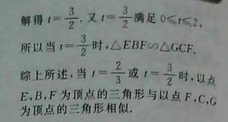 解得 t=3/2. 又 t=3/2 满足 0≤t≤2,
所以当 t=3/2 时, △EBF∽△GCF.
综上所述, 当 t=2/3 或 t=3/2 时, 以点
E,B,F 为顶点的三角形与以点 F,C,G
为顶点的三角形相似.